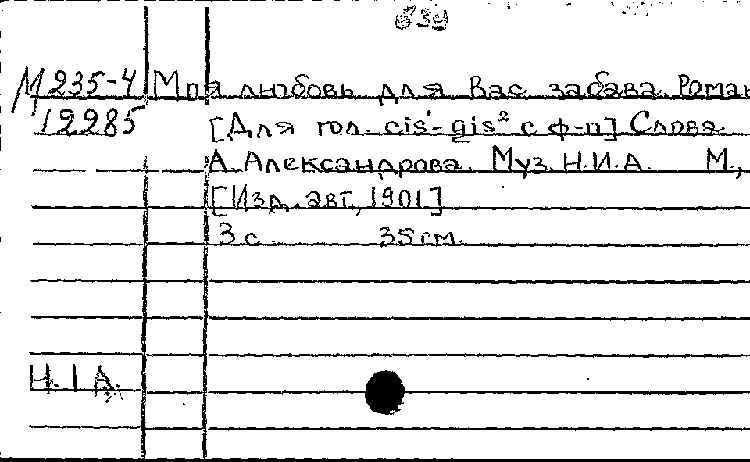 639
М 235-4 Моя любовь для Вас забава. Роман
12285 [Для гол. cis¹-gis² с ф-п] Слова
А. Александрова. Муз. Н.И.А. М.,
[Изд. авт., 1901]
3 с. 35 см.
Н. I А.